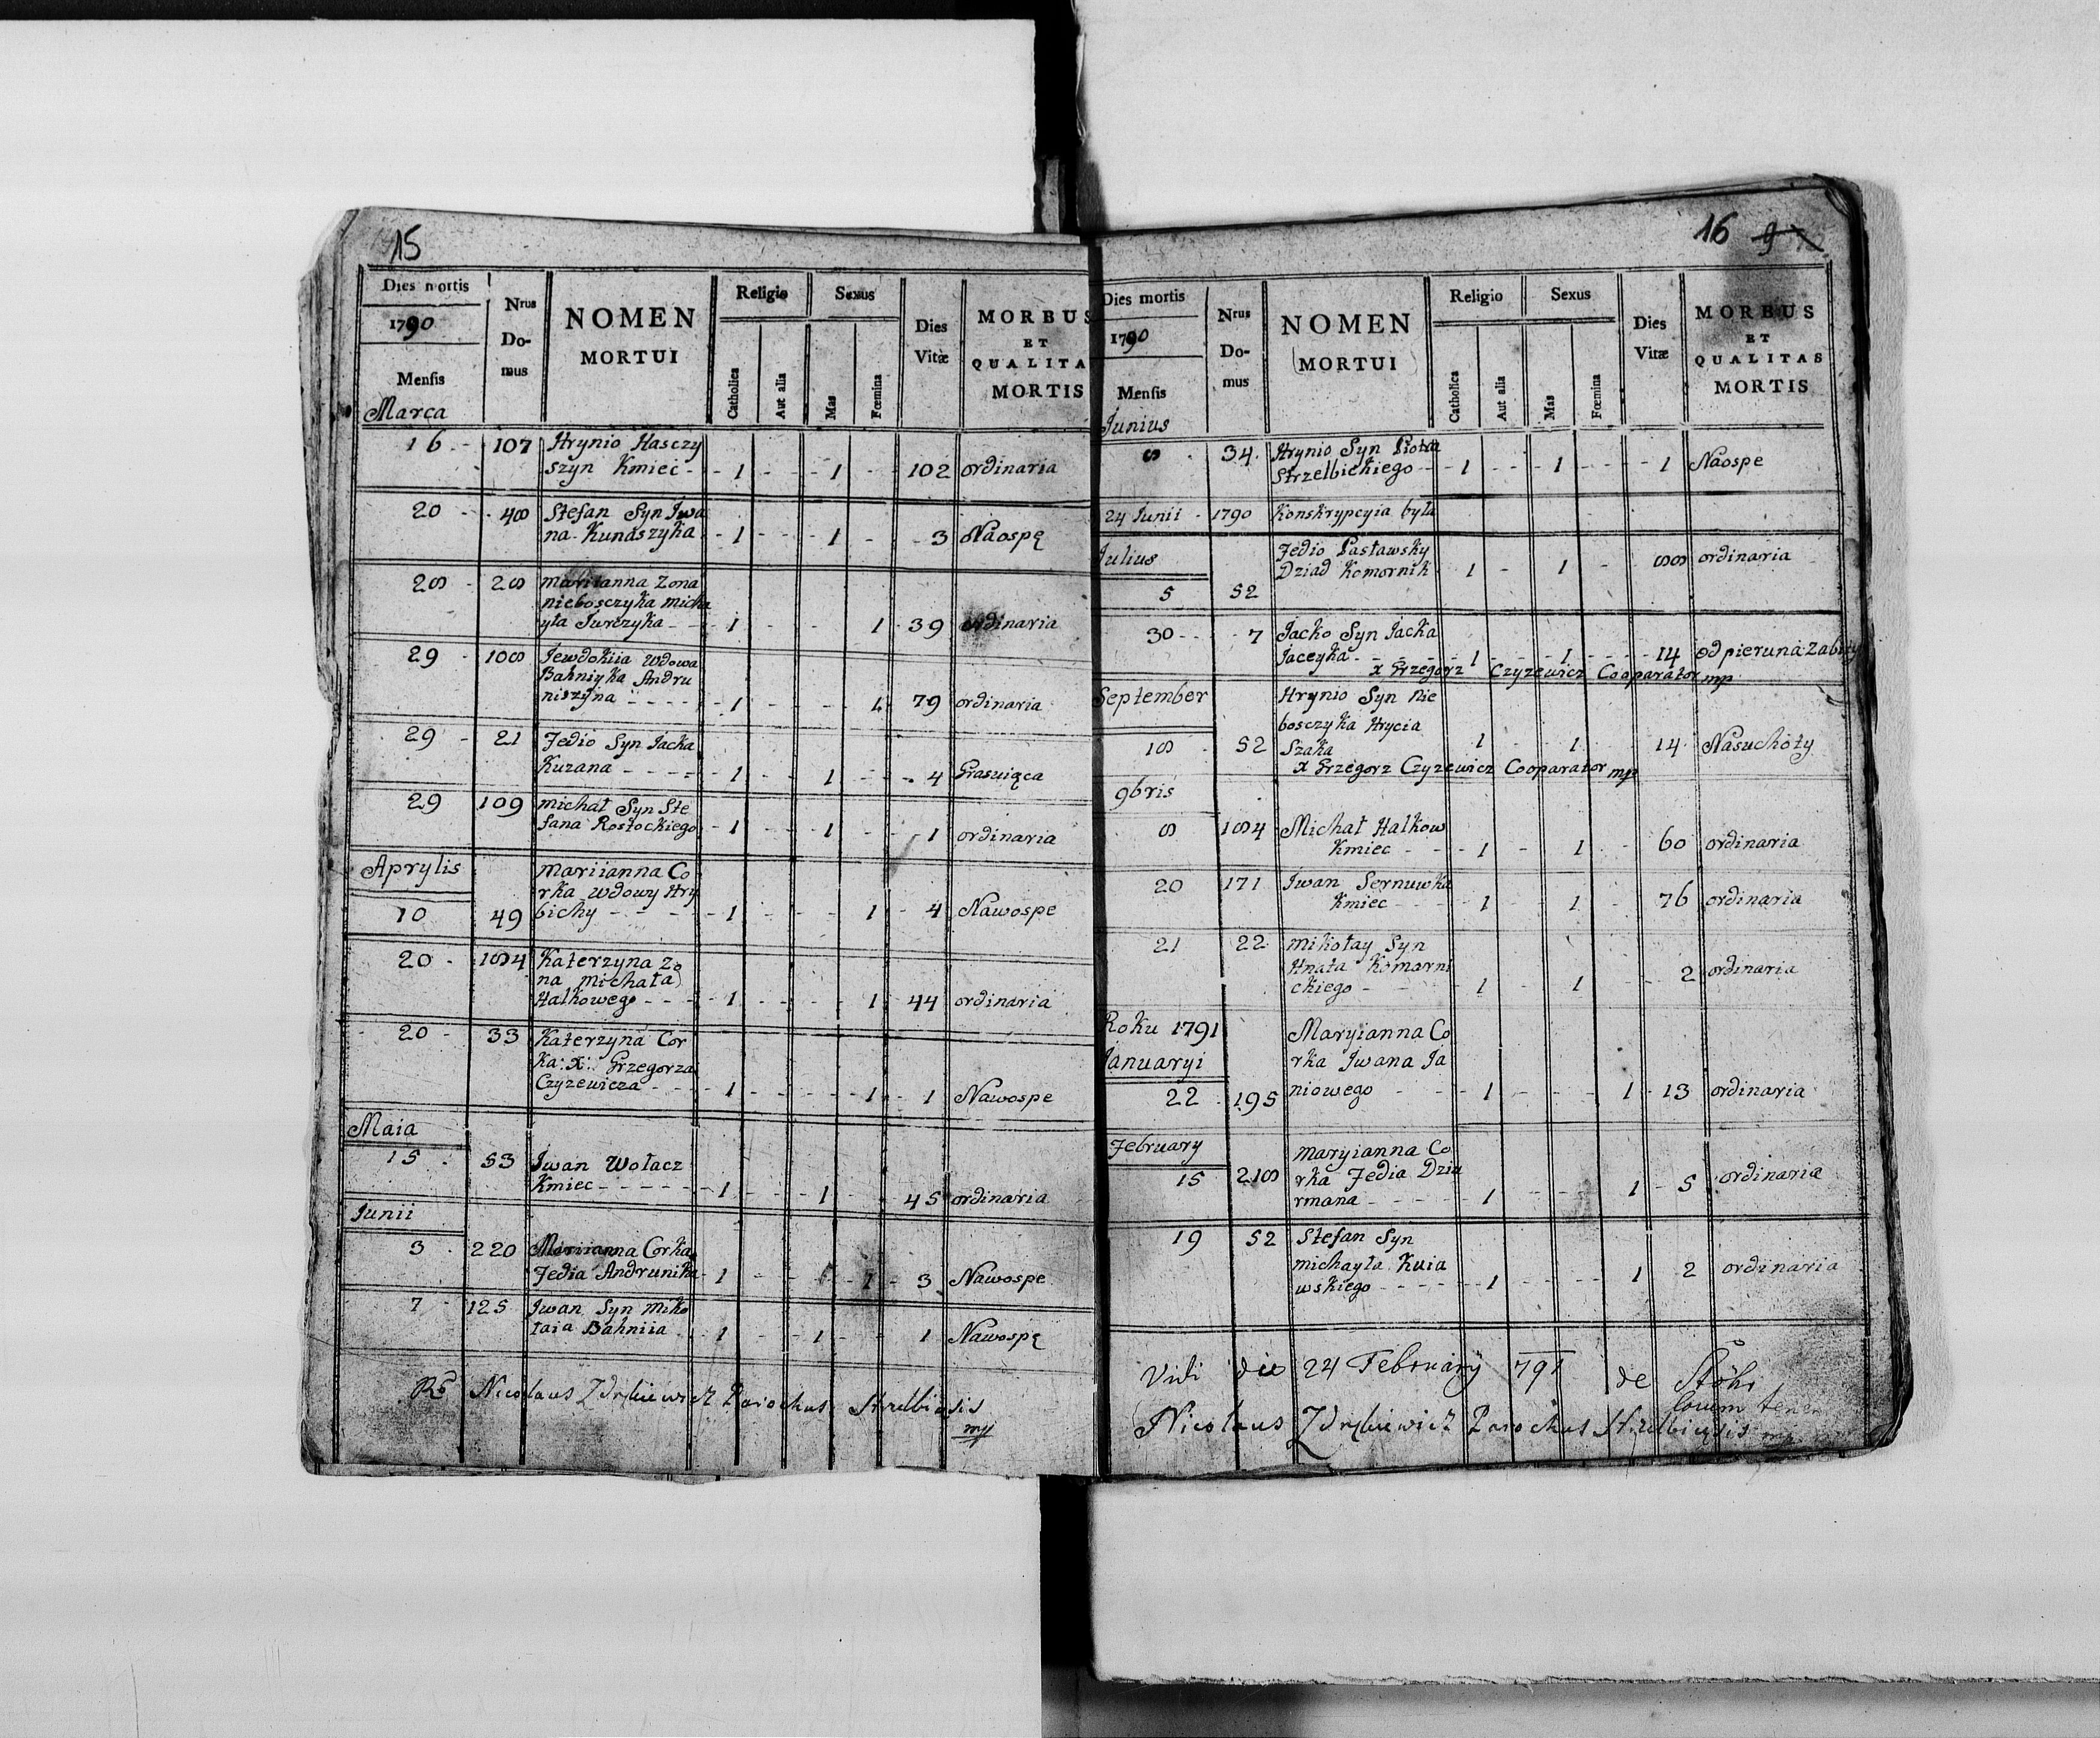 15
Dies mortis
1790
Mensis
Marca
Nrus Do- mus
NOMEN MORTUI
Religio
Catholica
Aut alia
Sexus
Mas
Fœmina
Dies Vitæ
MORBUS ET QUALITA MORTIS
16 - 107 Hrynio Hasczy
szyn Kmiec - - 1 - - - 1 - - 102 ordinaria
20 - - 48 Stefan Syn Jwa
na Kunaszyka - 1 - - - 1 - - 3 Naospę
28 - 28 mariianna Zona
nieboszczyka micha
yła Jurczyka - - - 1 - - - 1 - 39 ordinaria
29 - 108 Jewdokiia wdowa
Bahniyka Andru
niszyna - - - - - 1 - - - 1 79 ordinaria
29 - 21 Fedio Syn Jacka
Kuzana - - - - - 1 - - 1 - - - 4 Grasuiąca
29 109 michał Syn Ste
fana Rosłockiego - 1 - - 1 - - 1 ordinaria
Aprylis
mariianna Co
rka wdowy Hry
10 49 bichy - - - - - 1 - - - 1 - 4 Nawospe
20 - 184 Katerzyna Zo
na michała
Halkowego - - - - 1 - - - 1 - 44 ordinaria
- 20 - 33 Katerzyna Cor
ka: X: Grzegorza
Czyzewicza - - - - 1 - - - - 1 - 1 Nawospe
Maia
15 - 53 Jwan Wołacz
Kmiec - - - - - - 1 - - - 1 - - 45 ordinaria
Junii
3 - 220 Mariianna Corka
Fedia Andrunika - 1 - - - 1 - 3 Nawospe
7 - 125 Jwan Syn miko
łaia Bahniia - 1 - - 1 - - 1 Nawospę
Nicolaus Parochus
mp
16
9
Dies mortis
1790
Mensis
Junius
Nrus Do- mus
NOMEN MORTUI
Religio
Catholica
Aut alia
Sexus
Mas
Fœmina
Dies Vitæ
MORBUS ET QUALITAS MORTIS
8 - 34 Hrynio Syn Piotra
Strzelbickiego - - 1 - - - 1 - - - 1 Naospe
24 Junii - 1790 Konskrypcyia była
Julius
Fedio Pasławsky
Dziad Komornik 1 - 1 - 88 ordinaria
5 52
30 - - - 7 Jacko Syn Jacka
Jaceyka - - - - - 1 - - - 1 - - - - 14 od pieruna Zabity
x Grzegorz Czyzewicz Cooparator mp
September
Hrynio Syn nie
bosczyka Hrycia
18 - 52 Szaka 1 - - 1 - 14 Nasuchoty
x Grzegorz Czyzewicz Cooparator mp
9bris
8 184 Michał Halkow
Kmiec - - - 1 - 1 - - 60 ordinaria
20 171 Jwan Sernuwka
Kmiec - - - - 1 - - 1 - 76 ordinaria
21 22 mikołay Syn
Hnata Komarni
ckiego - - - 1 - - 1 - - - 2 ordinaria
Roku 1791
Januaryi
Maryianna Co
rka Jwana Ja
22 - 195 niowego - - - 1 - - - 1 - 13 ordinaria
February
maryianna Co
15 218 rka Fedia Dziu
rmana - - - - 1 - - - 1 - 5 ordinaria
19 52 Stefan Syn
michayła Kuia
wskiego - - - - - 1 - - - 1 2 ordinaria
Vidi die 24 February 791 de Stöhr
Nicolaus Parochus